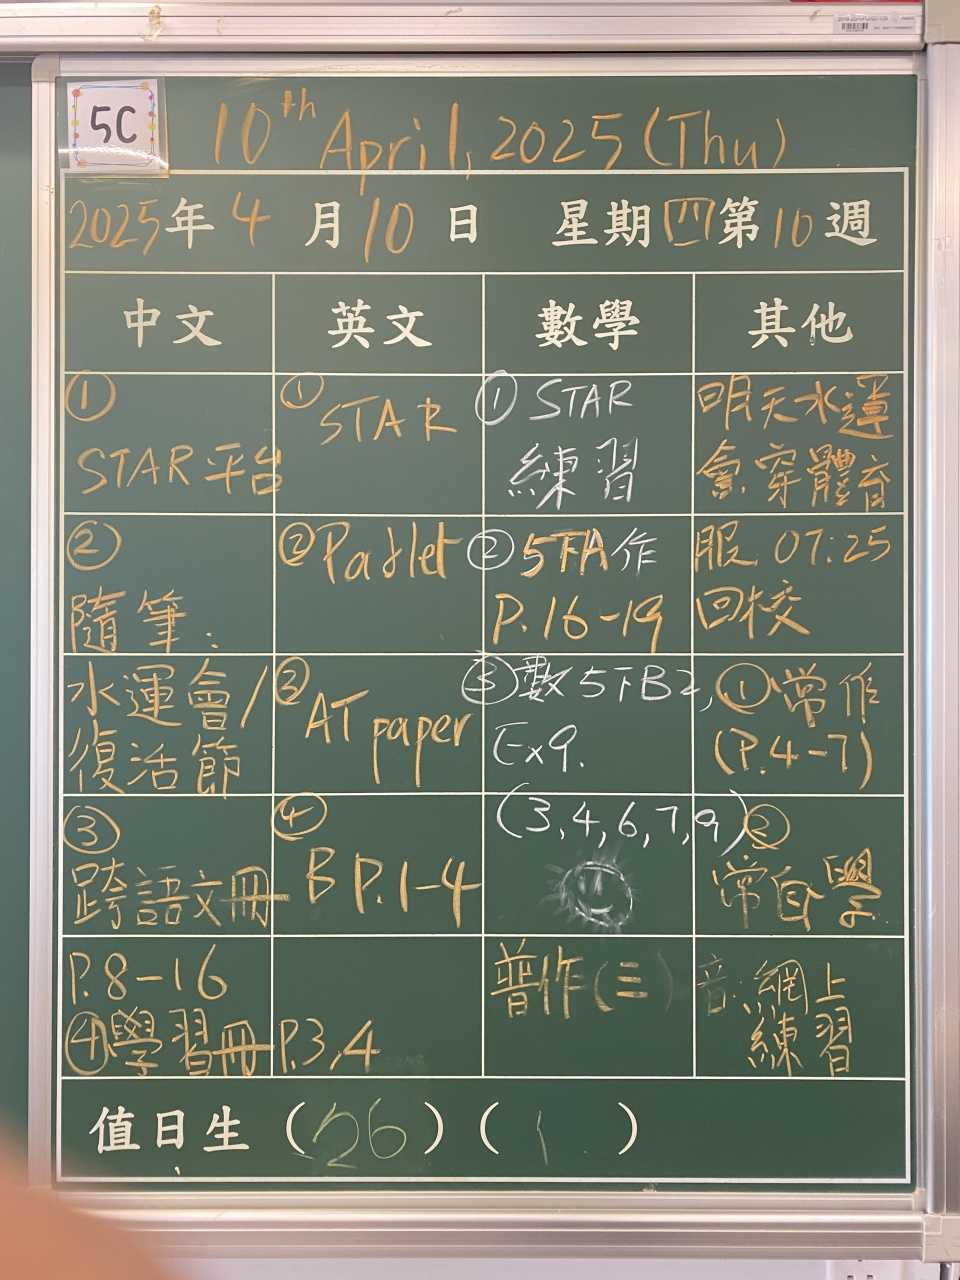 5C
10th April, 2025 (Thu)
2025年4月10日 星期四第10週
中文
①
STAR平台
②
隨筆:
水運會/
復活節
③
跨語文冊
P.8-16
④學習冊 P.3,4
英文
① STAR
② Padlet
③ AT paper
④
B P.1-4
數學
① STAR
練習
② 5下A作
P.16-19
③ 數5下B2,
Ex9.
(3,4,6,7,9)
普作(三)
其他
明天水運
會,穿體育
服 07:25
回校
①常作
(P.4-7)
②
常自學
音:網上
練習
值日生(26)(1)